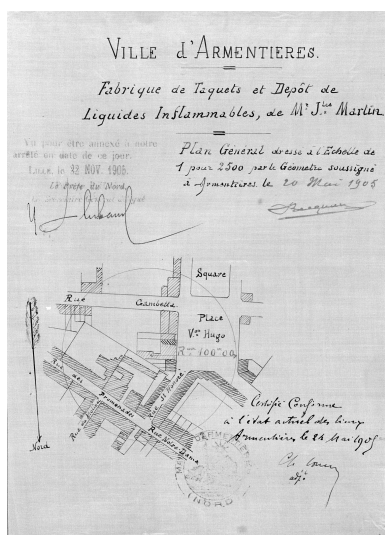 VILLE d'ARMENTIERES.
Fabrique de Taquets et Depôt de
Liquides Inflammables, de Mr Jles Martin
Vu pour être annexé à notre
arrêté en date de ce jour.
LILLE, le 22 NOV. 1905.
Le Préfet du Nord,
Plan Général dressé à l'Echelle de
1 pour 2500 par le Géomètre soussigné
à Armentières, le 20 Mai 1905
Square
Rue Gambetta
Place
Vor Hugo
Ron 100m00
Rue des Promenades
Rue Notre Dame
Nord
Certifié Conforme
à l'état actuel des lieux
Armentières le 24 Mai 1905
adjt
(NORD)